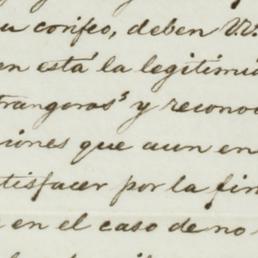 su corifeo, deben VV.
en está la legitimi
trangeros y recono
ciones que aun en
tisfacer por la fir
en el caso de no